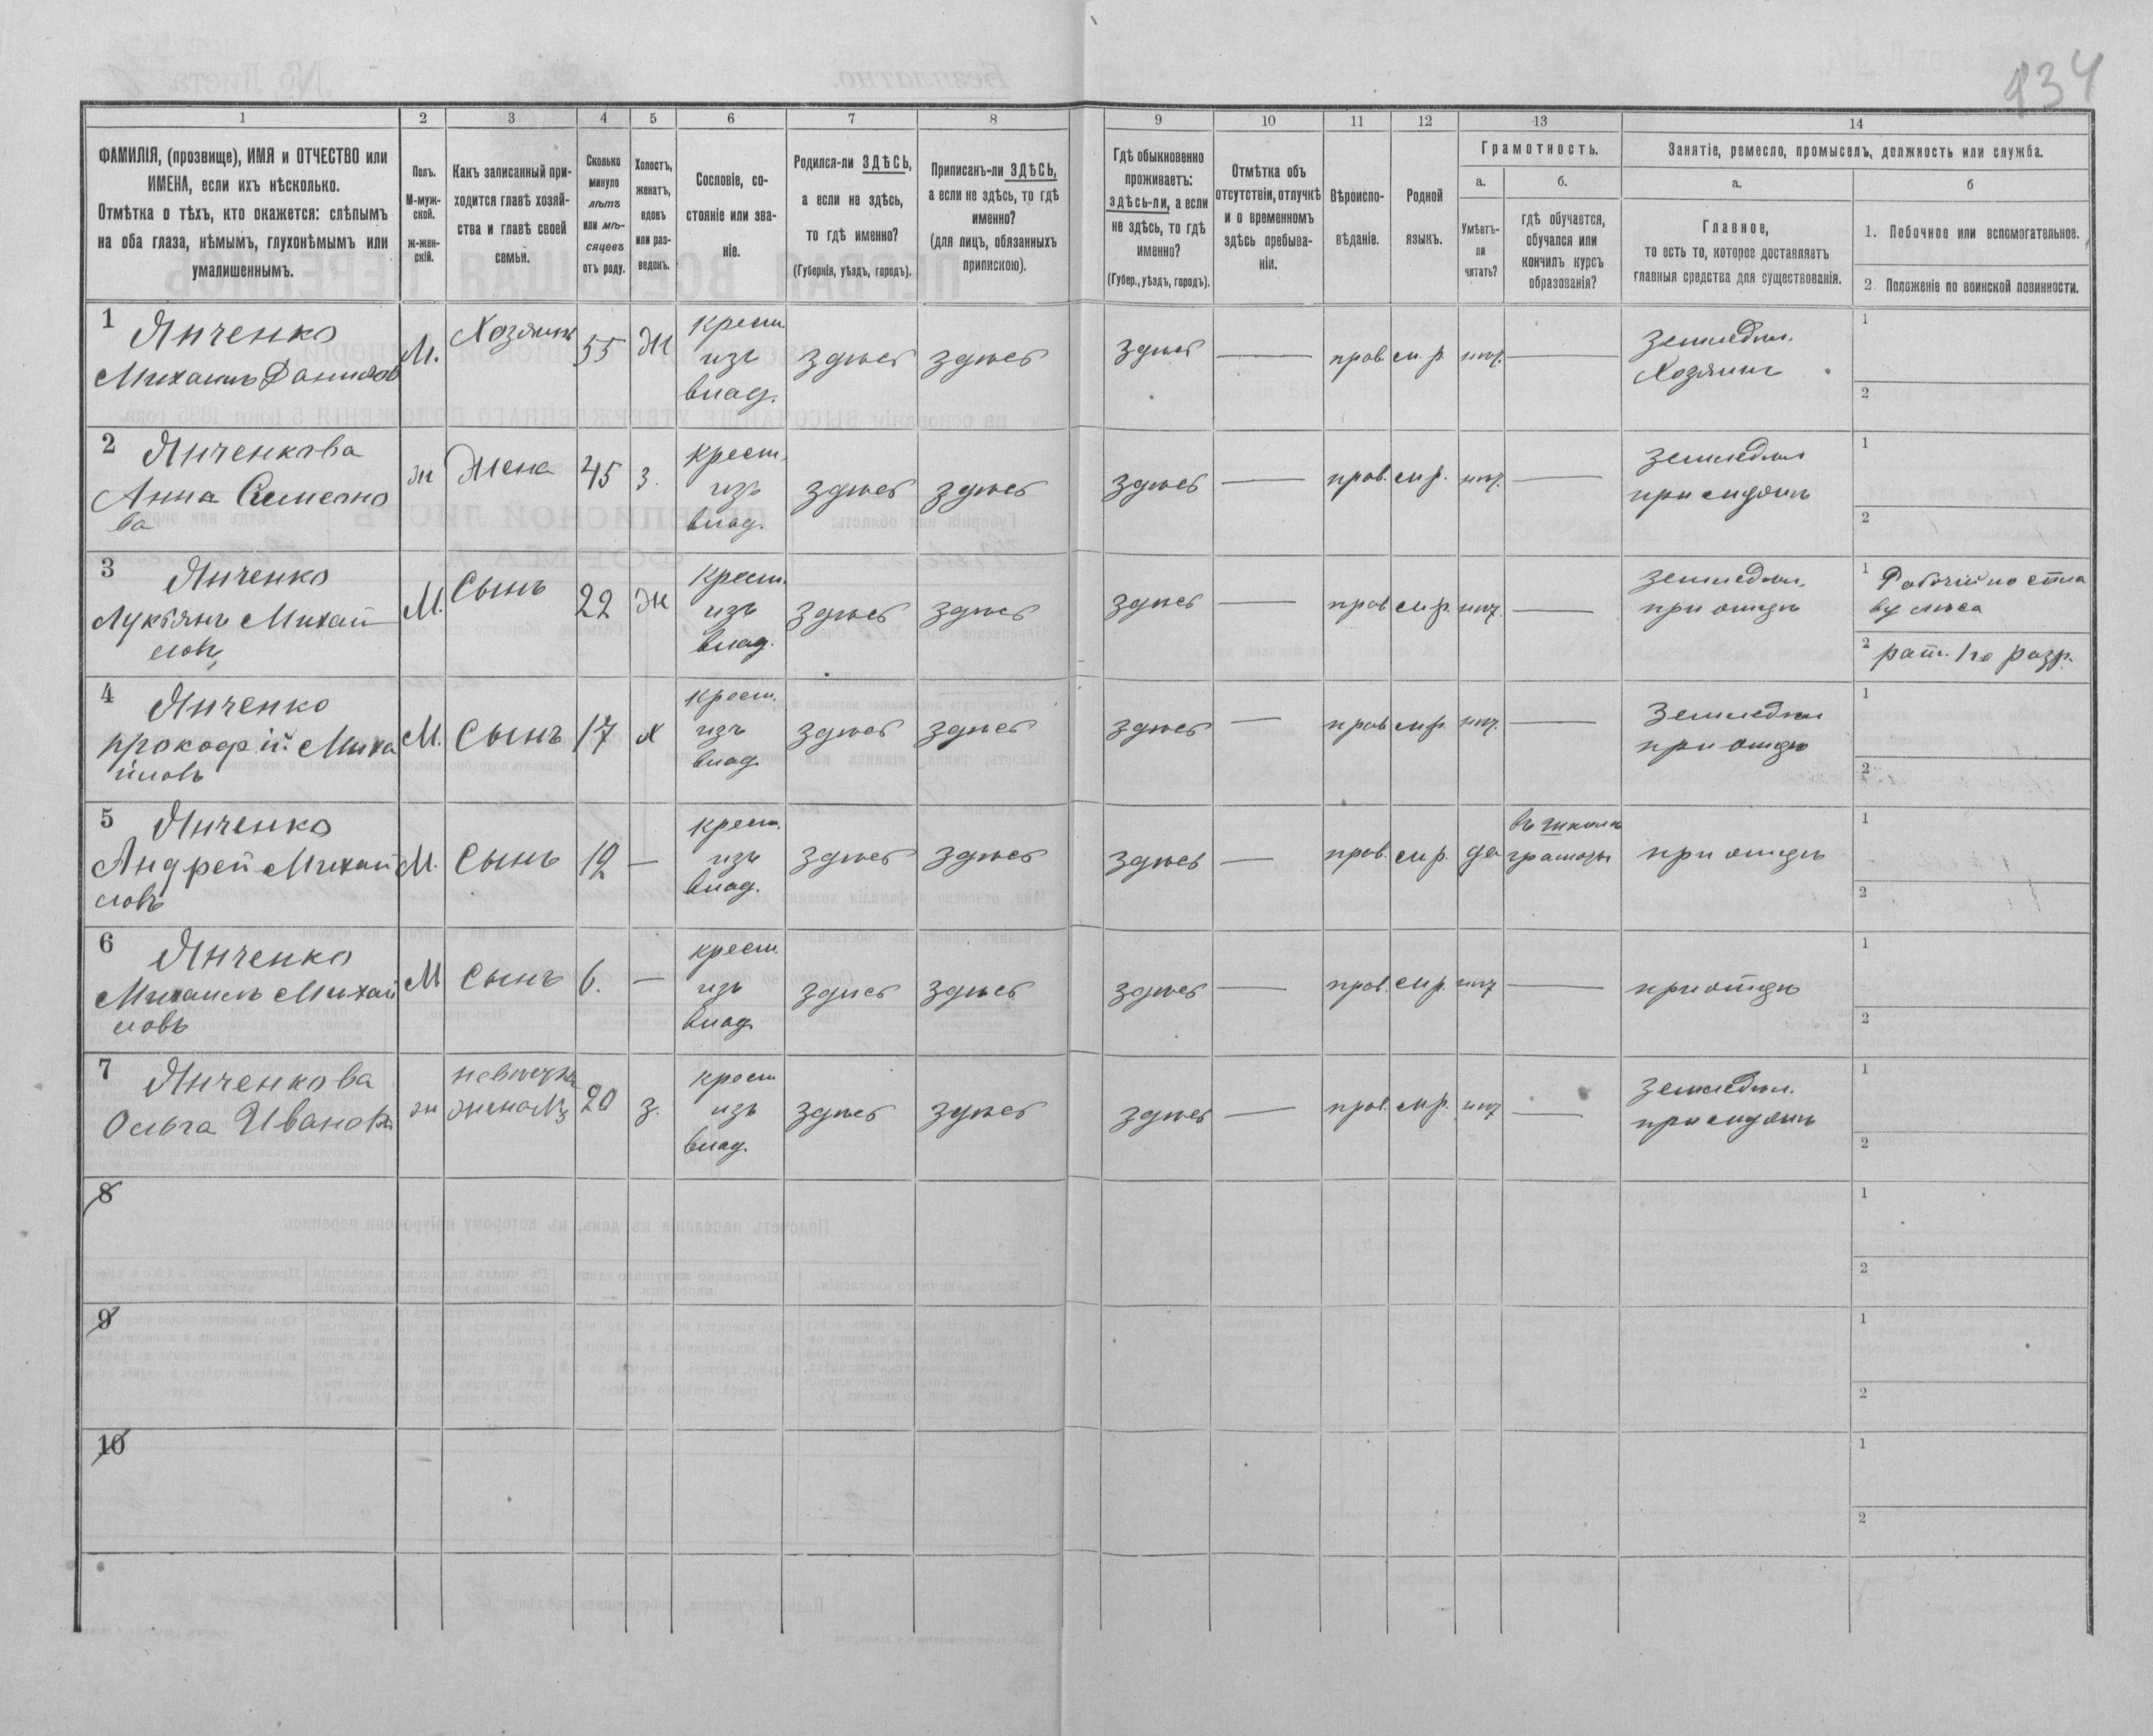 134
1 2 3 4 5 6 7 8 9 10 11 12 13 14
ФАМИЛІЯ, (прозвище), ИМЯ и ОТЧЕСТВО или
ИМЕНА, если ихъ нѣсколько.
Отмѣтка о тѣхъ, кто окажется: слѣпымъ
на оба глаза, нѣмымъ, глухонѣмымъ или
умалишеннымъ.
Полъ.
М-муж-
ской.
ж-жен-
скій.
Какъ записанный при-
ходится главѣ хозяй-
ства и главѣ своей
семьи.
Сколько
минуло
лѣтъ
или мѣ-
сяцевъ
отъ роду.
Холостъ,
женатъ,
вдовъ
или раз-
веденъ.
Сословіе, со-
стояніе или зва-
ніе.
Родился-ли ЗДѢСЬ,
а если не здѣсь,
то гдѣ именно?
(Губернія, уѣздъ, городъ).
Приписанъ-ли ЗДѢСЬ,
а если не здѣсь, то гдѣ
именно?
(для лицъ, обязанныхъ
припискою).
Гдѣ обыкновенно
проживаетъ:
здѣсь-ли, а если
не здѣсь, то гдѣ
именно?
(Губер., уѣздъ, городъ).
Отмѣтка объ
отсутствіи, отлучкѣ
и о временномъ
здѣсь пребыва-
ніи.
Вѣроиспо-
вѣданіе.
Родной
языкъ.
Грамотность.
а.
Умѣетъ-
ли
читать?
б.
гдѣ обучается,
обучался или
кончилъ курсъ
образованія?
Занятіе, ремесло, промыселъ, должность или служба.
а.
Главное,
то есть то, которое доставляетъ
главныя средства для существованія.
б
1. Побочное или вспомогательное.
2. Положеніе по воинской повинности.
1 Янченко
Михаилъ Данилов
М. Хозяинъ 55 Ж
крест.
изъ
влад.
здѣсь здѣсь здѣсь — пров. м.р. нѣт. —
земледѣл.
Хозяинъ
1
2
2 Янченкова
Анна Симеоно
ва
ж Жена 45 з.
крест.
изъ
влад.
здѣсь здѣсь здѣсь — пров. м.р. нѣт. —
земледѣл
при мужѣ
1
2
3 Янченко
Лукьянъ Михай
ловъ
М. Сынъ 22 Ж
крест.
изъ
влад.
здѣсь здѣсь здѣсь — пров м.р. нѣт. —
земледѣл.
при отцѣ
1 Рабочій по спла
ву лѣса
2 рат. 1го разр.
4 Янченко
прокофій Миха
йловъ
М. Сынъ 17 х
крест.
изъ
влад.
здѣсь здѣсь здѣсь — пров м.р. нѣт. —
Земледѣл
при отцѣ
1
2
5 Янченко
Андрей Михай
ловъ
М. Сынъ 12 —
крест.
изъ
влад.
здѣсь здѣсь здѣсь — пров. м.р. да
въ школѣ
грамоты
при отцѣ
1
2
6 Янченко
Михаилъ Михай
ловъ
М Сынъ 6. —
крест.
изъ
влад.
здѣсь здѣсь здѣсь — пров. м.р. нѣт —
при отцѣ
1
2
7 Янченкова
Ольга Иванов
ж невѣстка
жена №3 20 з.
крест
изъ
влад.
здѣсь здѣсь здѣсь — пров. м.р. нѣт —
земледѣл.
при мужѣ
1
2
8
1
2
9
1
2
10
1
2